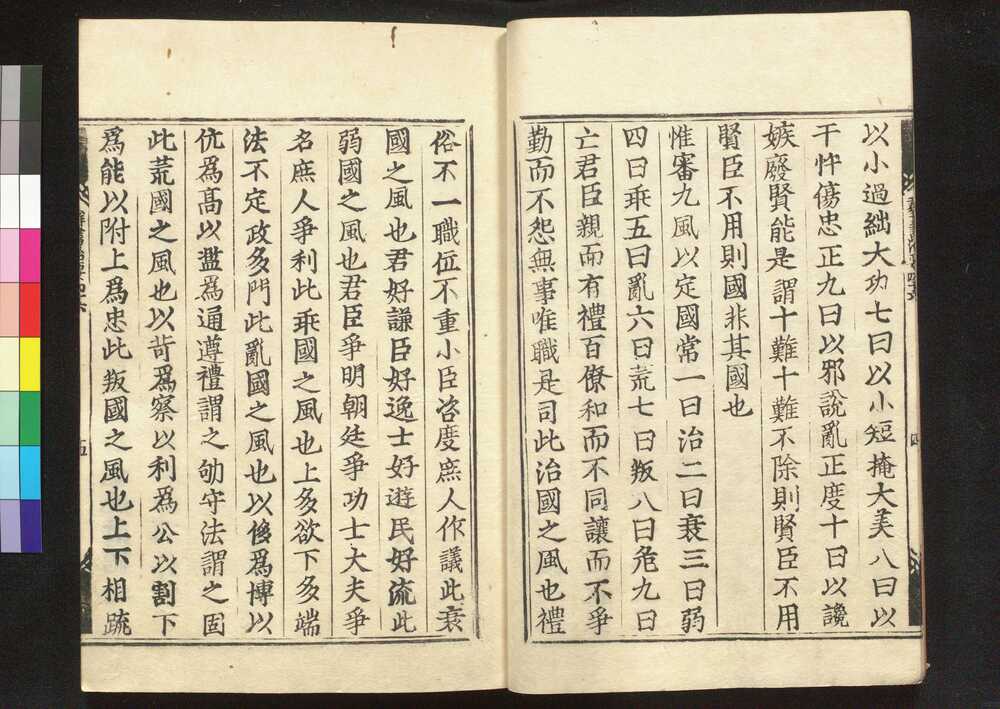 以小過絀大功七曰以小短掩大美八曰以
干忤傷忠正九曰以邪說亂正度十曰以讒
嫉廢賢能是謂十難十難不除則賢臣不用
賢臣不用則國非其國也
惟審九風以定國常一曰治二曰衰三曰弱
四曰乖五曰亂六曰荒七曰叛八曰危九曰
亡君臣親而有禮百僚和而不同讓而不爭
勤而不怨無事唯職是司此治國之風也禮
俗不一職位不重小臣咨度庶人作議此衰
國之風也君好謙臣好逸士好遊民好流此
弱國之風也君臣爭明朝廷爭功士大夫爭
名庶人爭利此乖國之風也上多欲下多端
法不定政多門此亂國之風也以侈爲博以
伉爲高以濫爲通遵禮謂之劬守法謂之固
此荒國之風也以苛爲察以利爲公以割下
爲能以附上爲忠此叛國之風也上下相疏
四
五